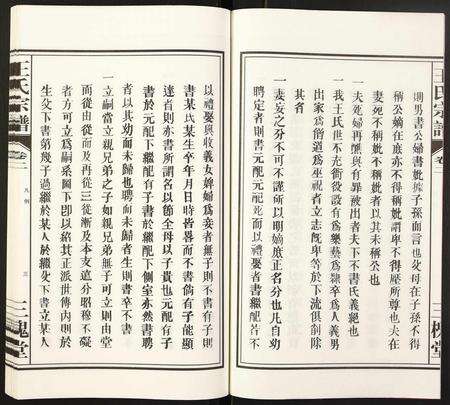 王氏宗譜
卷一
三槐堂
則男書公婦書妣據子孫而言也父母在子孫不得
稱公嫡在庶亦不得稱妣謂卑不得壓所尊也夫在
妻死不稱妣不稱妣者以其未稱公也
一夫死婦再醮與有罪被出者夫下不書氏義絕也
一我王氏世不充衙役設有為樂藝為隸卒為人義男
出家為僧道為巫祝者立志既卑等於下流俱削除
其名
一妻妾之分不可不謹所以明嫡庶正名分也凡自幼
聘定者則書元配元配死而以禮娶者書繼配若不
以禮娶與收義女婢婦為妾者無子則不書有子則
書某氏某生卒年月日時皆畧而不書倘有子能顯
達者則亦書所謂名以節全母以子貴也元配有子
書於元配下繼配有子書於繼配下側室亦然書聘
者以其幼而未歸也聘而未歸者生則書卒不書
一立嗣當立親兄弟之子如親兄弟無子可立則由堂
而從由從而及再從三從漸及本支遠分昭穆不礙
者方可立為嗣系圖下卽以紹其正派世傳內則於
生父下書第幾子過繼於某人於繼父下書立某人
王氏宗譜
卷一
凡例
三
三槐堂